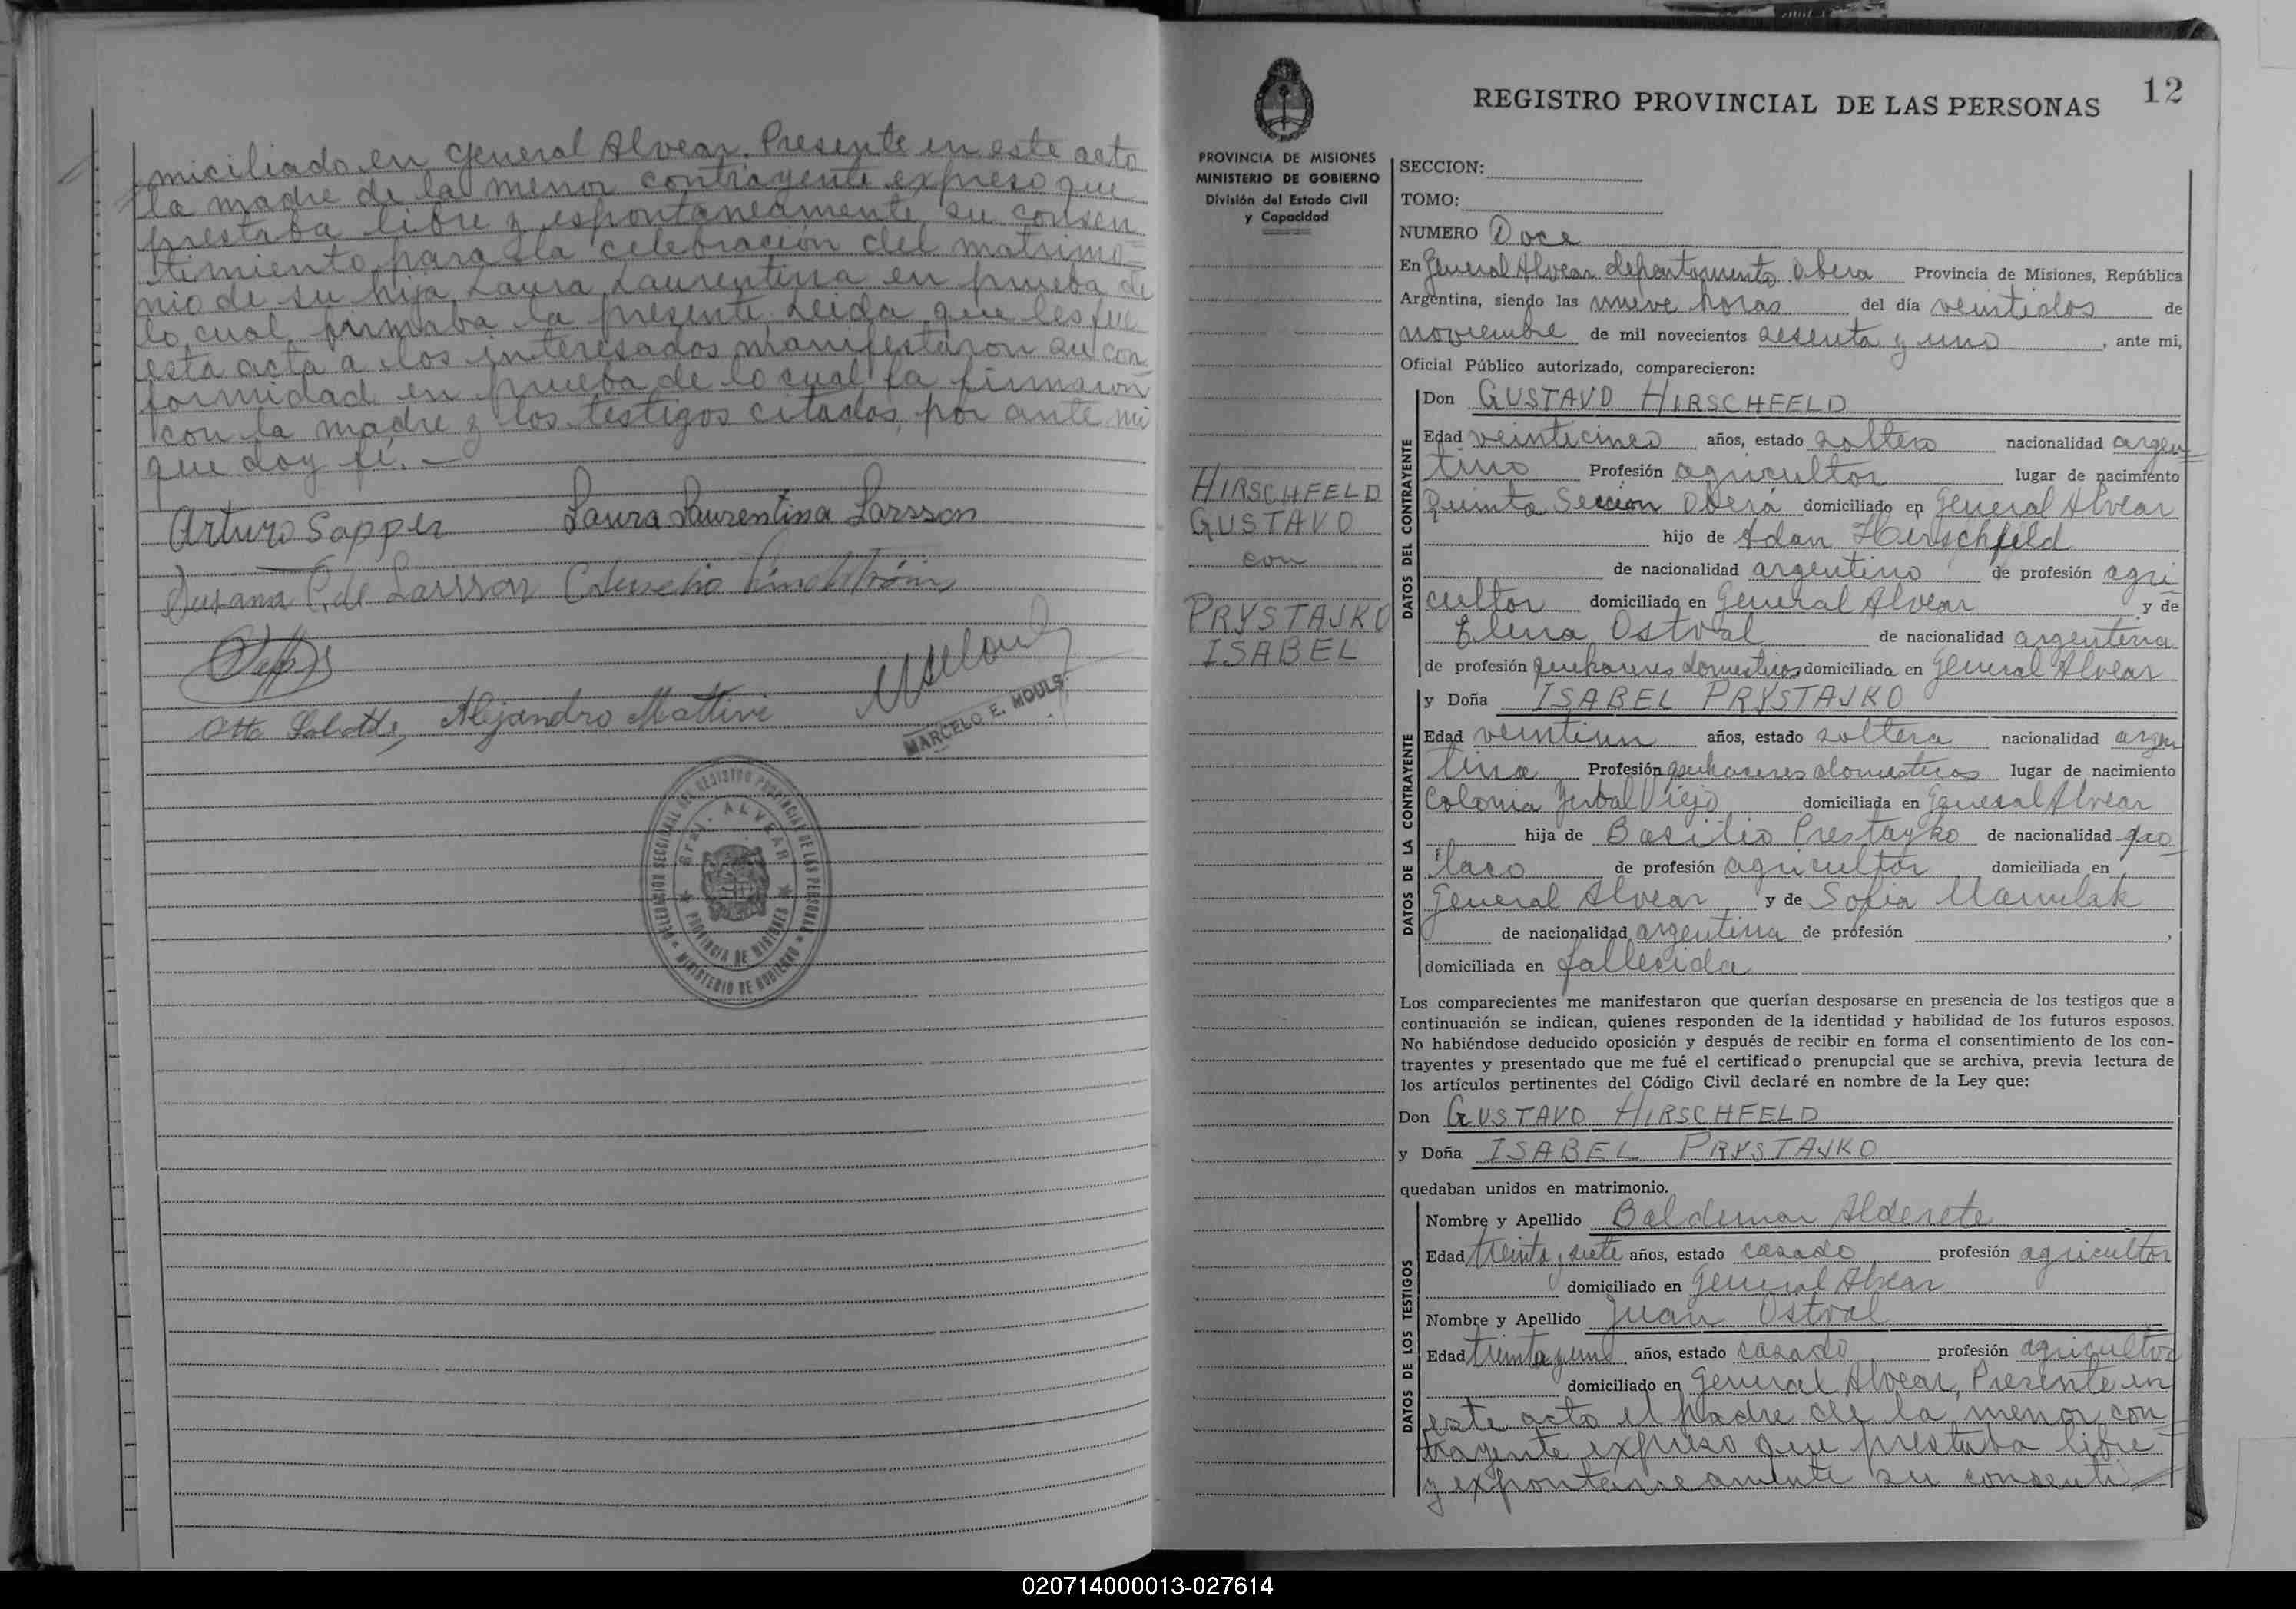 miciliado en General Alvear. Presente en este acto
la madre de la menor contrayente expreso que
prestaba libre y espontaneamente su consen
timiento para la celebración del matrimo=
nio de su hija Laura Laurentina en prueba de
lo cual firmaba la presente. Leida que les fue
esta acta a los interesados manifestaron su con
formidad en prueba de lo cual la firmaron
con la madre y los testigos citados, por ante mi
que doy fé.-
Arturo Sapper Laura Laurentina Larsson
Susana de Larsson
Alejandro Mattivi
MARCELO E. MOULS
DELEGACION SECCIONAL DEL REGISTRO PROVINCIAL DE LAS PERSONAS
MINISTERIO DE GOBIERNO
Gral. ALVEAR
PROVINCIA DE MISIONES
12
REGISTRO PROVINCIAL DE LAS PERSONAS
PROVINCIA DE MISIONES
MINISTERIO DE GOBIERNO
División del Estado Civil
y Capacidad
HIRSCHFELD
GUSTAVO
con
PRYSTAJKO
ISABEL
SECCION:
TOMO:
NUMERO Doce
En General Alvear departamento Obera Provincia de Misiones, República
Argentina, siendo las nueve horas del día veintidos de
noviembre de mil novecientos sesenta y uno, ante mi,
Oficial Público autorizado, comparecieron:
DATOS DEL CONTRAYENTE
Don GUSTAVO HIRSCHFELD
Edad veinticinco años, estado soltero nacionalidad argen
tino Profesión agricultor lugar de nacimiento
Quinta Sección Oberá domiciliado en General Alvear
hijo de Adan Hirschfeld
de nacionalidad argentino de profesión agri
cultor domiciliado en General Alvear y de
Elena Ostral de nacionalidad argentina
de profesión quehaceres domesticos domiciliada en General Alvear
DATOS DE LA CONTRAYENTE
y Doña ISABEL PRYSTAJKO
Edad veintiun años, estado soltera nacionalidad argen
tina Profesión quehaceres domesticos lugar de nacimiento
Colonia Yerbal Viejo domiciliada en General Alvear
hija de Basilio Prestayko de nacionalidad
de profesión agricultor domiciliada en
General Alvear y de Sofia
de nacionalidad argentina de profesión ,
domiciliada en fallecida
Los comparecientes me manifestaron que querían desposarse en presencia de los testigos que a
continuación se indican, quienes responden de la identidad y habilidad de los futuros esposos.
No habiéndose deducido oposición y después de recibir en forma el consentimiento de los con-
trayentes y presentado que me fué el certificado prenupcial que se archiva, previa lectura de
los artículos pertinentes del Código Civil declaré en nombre de la Ley que:
Don GUSTAVO HIRSCHFELD
y Doña ISABEL PRYSTAJKO
quedaban unidos en matrimonio.
DATOS DE LOS TESTIGOS
Nombre y Apellido Baldemar Alderete
Edad treinta y siete años, estado casado profesión agricultor
domiciliado en General Alvear
Nombre y Apellido Juan Ostral
Edad treinta y uno años, estado casado profesión agricultor
domiciliado en General Alvear, Presente en
este acto el padre de la menor con
trayente expreso que prestaba libre
y expontaneamente su consenti
020714000013-027614